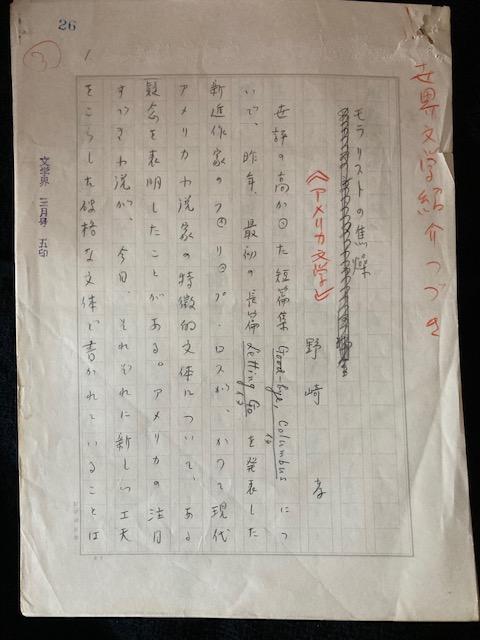 26
③
1
世界文学紹介つづき
モラリストの焦燥
《アメリカ文学》
野崎孝
世評の高かった短篇集 Good-bye, Columbus につ
いで、昨年、最初の長篇 Letting Go を発表した
新進作家のフィリップ・ロスが、かつて現代
アメリカ小説家の特徴的文体について、ある
疑念を表明したことがある。アメリカの注目
すべき小説が、今日、それぞれに新しい工夫
をこらした破格な文体で書かれていることは
文学界 三月号 五印